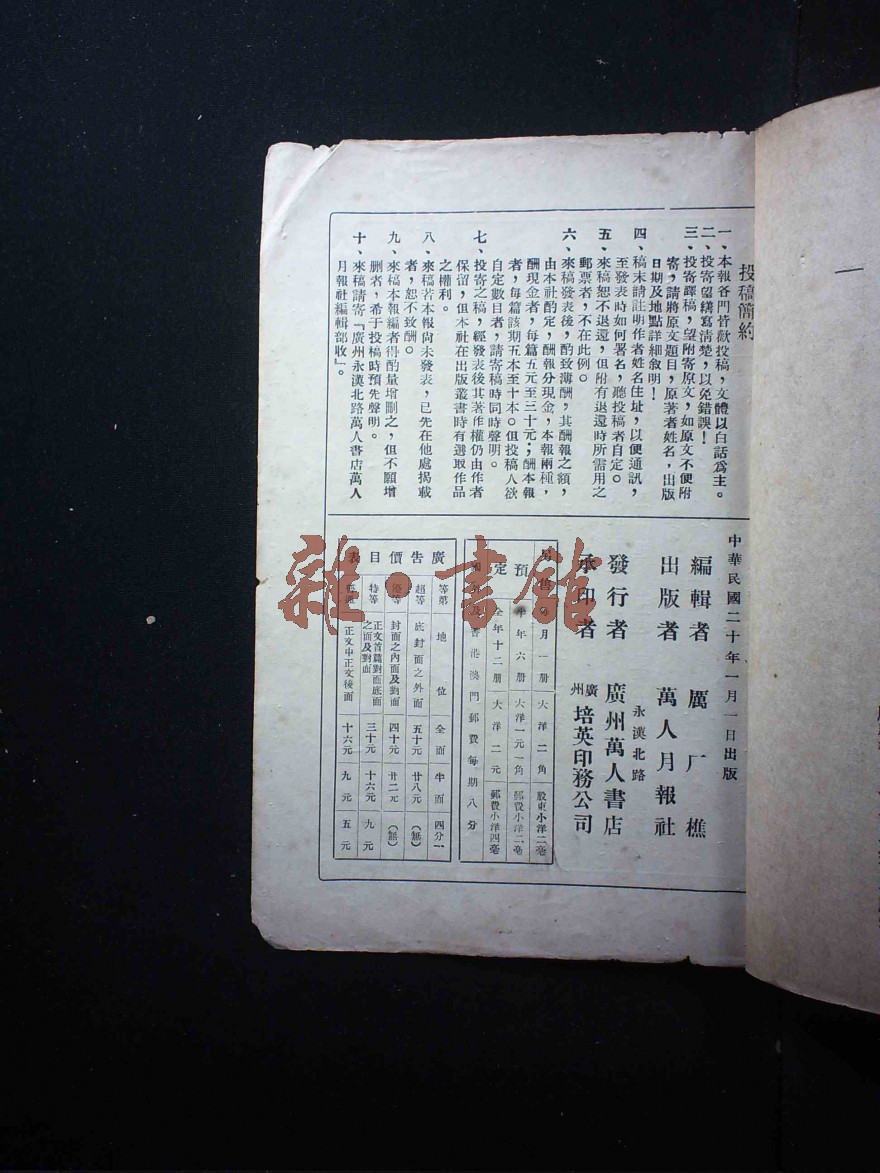 投稿簡約
一、本報各門皆歡投稿，文體以白話爲主。
二、投寄望繕寫清楚，以免錯誤！
三、投寄譯稿，望附寄原文，如原文不便附
寄，請將原文題目，原著者姓名，出版
日期及地點詳細敘明！
四、稿末請註明作者姓名住址，以便通訊，
至發表時如何署名，聽投稿者自定。
五、來稿恕不退還，但附有退還時所需用之
郵票者，不在此例。
六、來稿發表後，酌致薄酬，其酬報之額，
由本社酌定，酬報分現金，本報兩種，
酬現金者，每篇五元至三十元；酬本報
者，每篇該期五本至十本。但投稿人欲
自定數目者，請寄稿時同時聲明。
七、投寄之稿，經發表後其著作權仍由作者
保留，但本社在出版叢書時有選取作品
之權利。
八、來稿若本報尚未發表，已先在他處揭載
者，恕不致酬。
九、來稿本報編者得酌量增刪之，但不願增
刪者，希于投稿時預先聲明。
十、來稿請寄『廣州永漢北路萬人書店萬人
月報社編輯部收』。
中華民國二十年一月一日出版
編輯者 厲厂樵
出版者 萬人月報社
永漢北路
發行者 廣州萬人書店
承印者 廣州培英印務公司
月一册 大洋二角 股東小洋二毫
預定
半年六册 大洋一元一角 郵費小洋二毫
全年十二册 大洋二元 郵費小洋四毫
香港澳門郵費每期八分
廣告價目表
等第 地位 全面 半面 四分一
超等 底封面之外面 五十元 廿八元 （無）
優等 封面之內面及對面 四十元 廿二元 （無）
特等 正文首篇對面底面之面及對面 三十元 十六元 九元
正文中正文後面 十六元 九元 五元
雜·書館
一